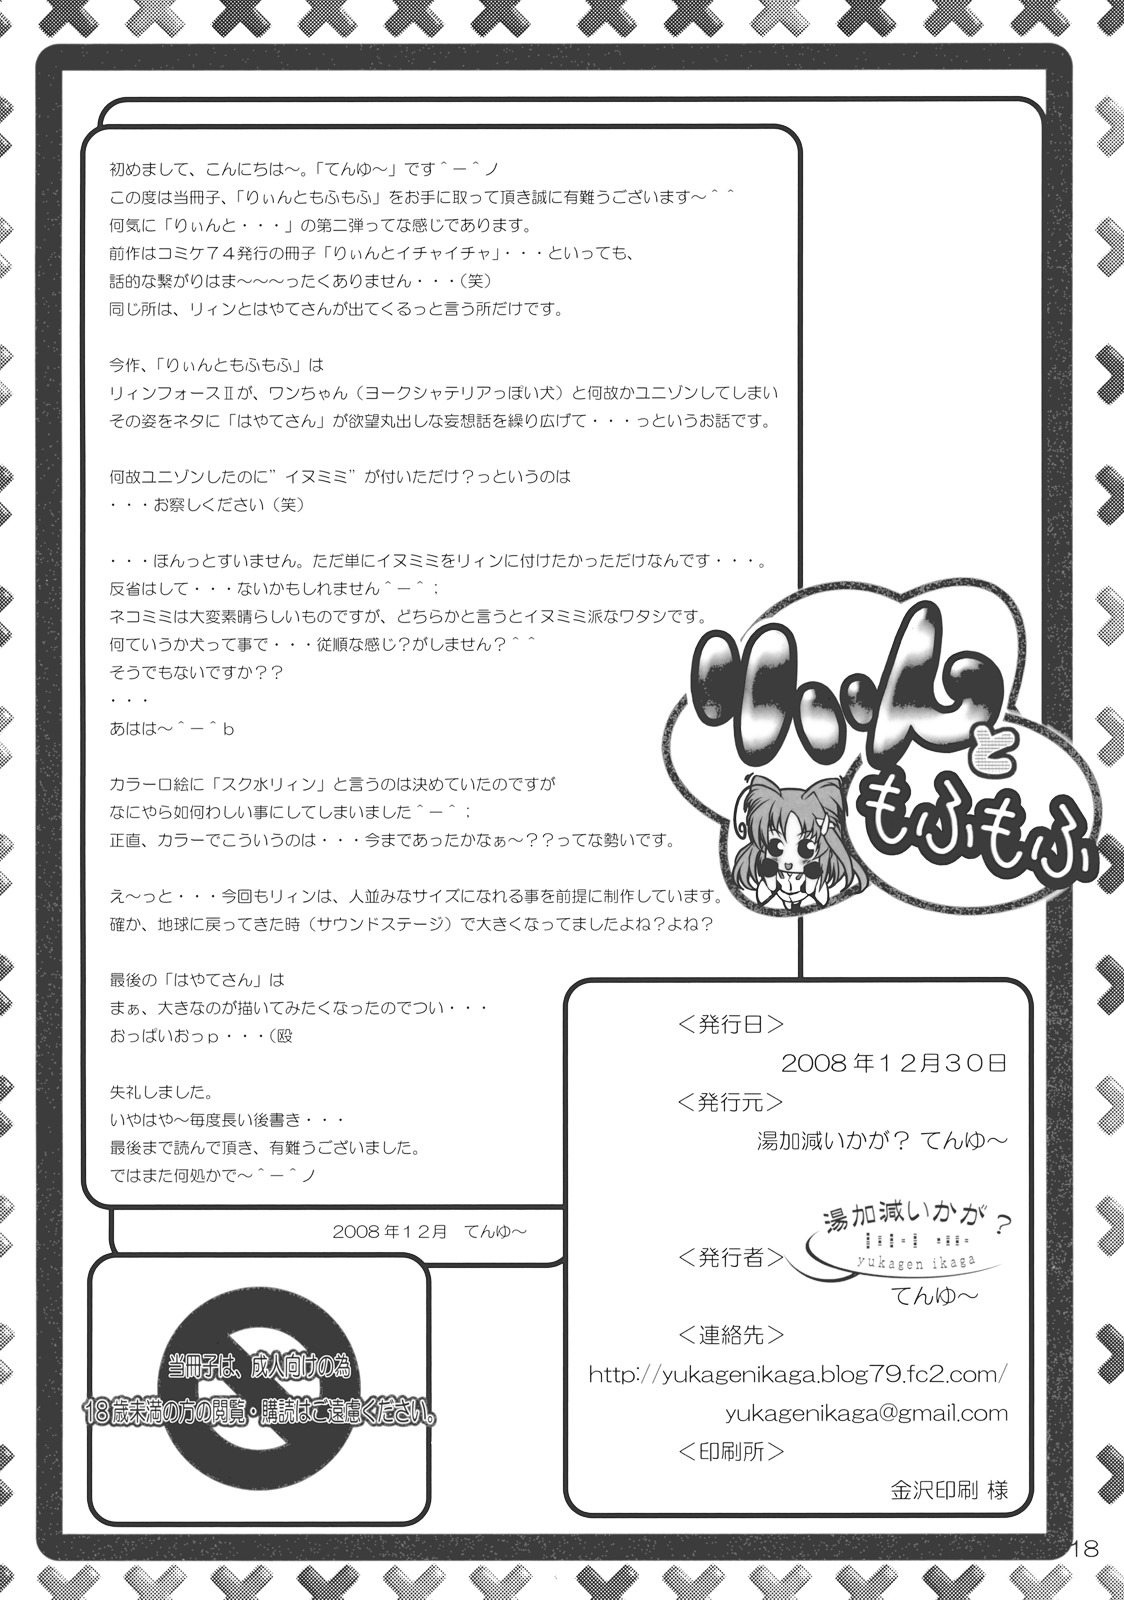 初めまして、こんにちは～。「てんゆ～」です＾－＾ノ
この度は当冊子、「りぃんともふもふ」をお手に取って頂き誠に有難うございます～＾＾
何気に「りぃんと・・・」の第二弾ってな感じであります。
前作はコミケ７４発行の冊子「りぃんとイチャイチャ」・・・といっても、
話的な繋がりはま～～～ったくありません・・・（笑）
同じ所は、リィンとはやてさんが出てくるっと言う所だけです。
今作、「りぃんともふもふ」は
リィンフォースⅡが、ワンちゃん（ヨークシャテリアっぽい犬）と何故かユニゾンしてしまい
その姿をネタに「はやてさん」が欲望丸出しな妄想話を繰り広げて・・・っというお話です。
何故ユニゾンしたのに”イヌミミ”が付いただけ？っというのは
・・・お察しください（笑）
・・・ほんっとすいません。ただ単にイヌミミをリィンに付けたかっただけなんです・・・。
反省はして・・・ないかもしれません＾－＾；
ネコミミは大変素晴らしいものですが、どちらかと言うとイヌミミ派なワタシです。
何ていうか犬って事で・・・従順な感じ？がしません？＾＾
そうでもないですか？？
・・・
あはは～＾－＾ｂ
カラー口絵に「スク水リィン」と言うのは決めていたのですが
なにやら如何わしい事にしてしまいました＾－＾；
正直、カラーでこういうのは・・・今まであったかなぁ～？？ってな勢いです。
え～っと・・・今回もリィンは、人並みなサイズになれる事を前提に制作しています。
確か、地球に戻ってきた時（サウンドステージ）で大きくなってましたよね？よね？
最後の「はやてさん」は
まぁ、大きなのが描いてみたくなったのでつい・・・
おっぱいおっｐ・・・（殴
失礼しました。
いやはや～毎度長い後書き・・・
最後まで読んで頂き、有難うございました。
ではまた何処かで～＾－＾ノ
2008年１２月　てんゆ～
りぃんと
もふもふ
＜発行日＞
2008年１２月３０日
＜発行元＞
湯加減いかが？ てんゆ～
湯加減いかが？
yukagen ikaga
＜発行者＞
てんゆ～
＜連絡先＞
http://yukagenikaga.blog79.fc2.com/
yukagenikaga@gmail.com
＜印刷所＞
金沢印刷 様
当冊子は、成人向けの為
18歳未満の方の閲覧・購読はご遠慮ください。
18